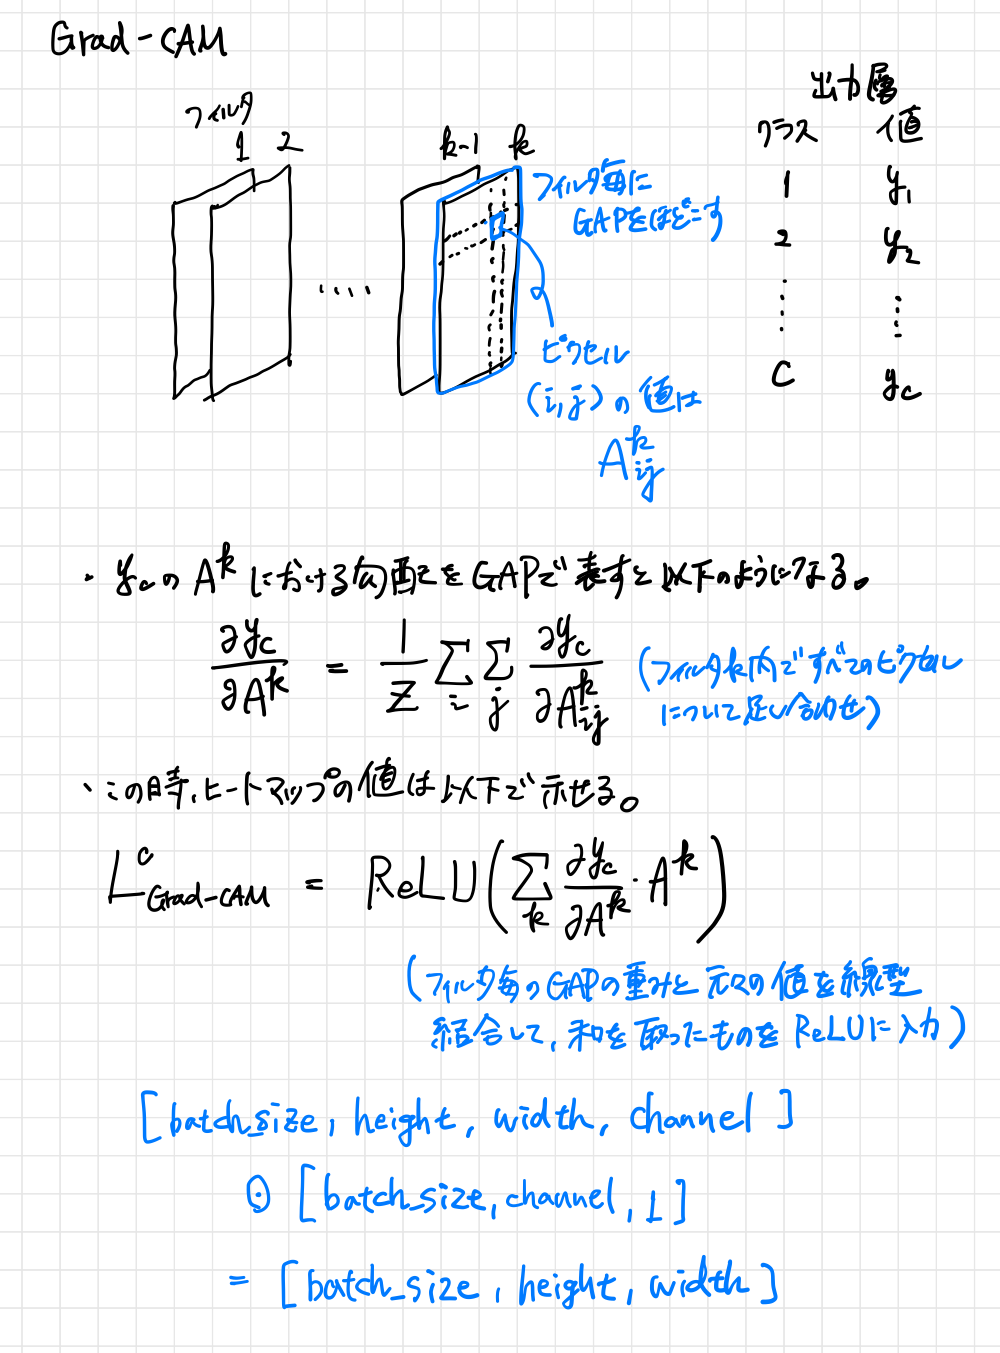 Grad-CAM
フィルタ
1 2 k-1 k
フィルタ毎に
GAPをほどこす
ピクセル
(i,j)の値は
A^k_ij
出力層
クラス 値
1 y_1
2 y_2
⋮ ⋮
C y_c
・y_cのA^kにおける勾配をGAPで表すと以下のようになる。
∂y_c/∂A^k = 1/Z Σ_i Σ_j ∂y_c/∂A^k_ij
(フィルタk内ですべてのピクセル
について足し合わせ)
・この時、ヒートマップの値は以下で示せる。
L^c_Grad-CAM = ReLU(Σ_k ∂y_c/∂A^k · A^k)
(フィルタ毎のGAPの重みと元々の値を線型
結合して、和を取ったものをReLUに入力)
[batch_size, height, width, channel]
⊙ [batch_size, channel, 1]
= [batch_size, height, width]